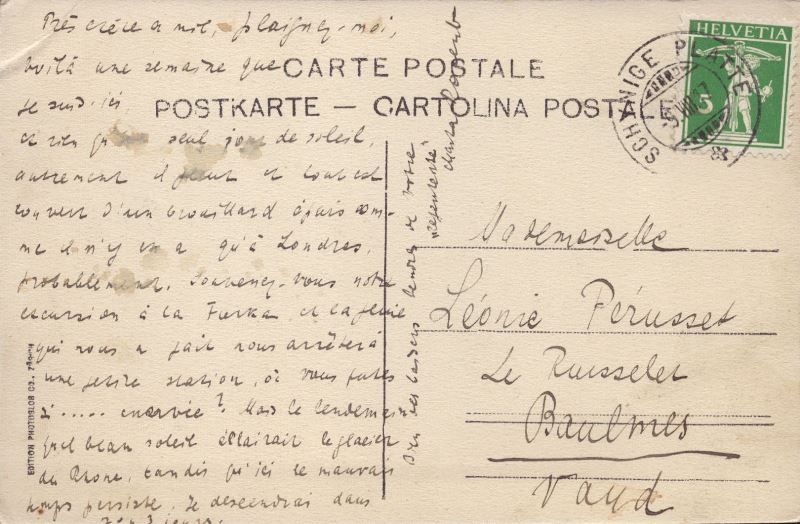 Très chère amie, plaignez-moi,
voilà une semaine que
je suis ici
et rien qu'un seul jour de soleil,
autrement il pleut et tout est
couvert d'un brouillard épais com-
me il n'y en a qu'à Londres,
probablement. Souvenez-vous notre
excursion à la Furka, et la pluie
qui nous a fait nous arrêter à
une petite station, où vous futes
si ..... enervée? Mais le lendemain
quel beau soleil éclairait le glacier
du Rhone, tandis qu'ici le mauvais
temps persiste. Je descendrai dans
2 ou 3 jours.
Bien des baisers tendres de votre
"
CARTE POSTALE
POSTKARTE — CARTOLINA POSTALE
HELVETIA
5
SCHYNIGE PLATTE
VIII
Mademoiselle
Léonie Pérusset
Le Ruisselet
Baulmes
Vaud
EDITION PHOTOGLOB CO., ZÜRICH